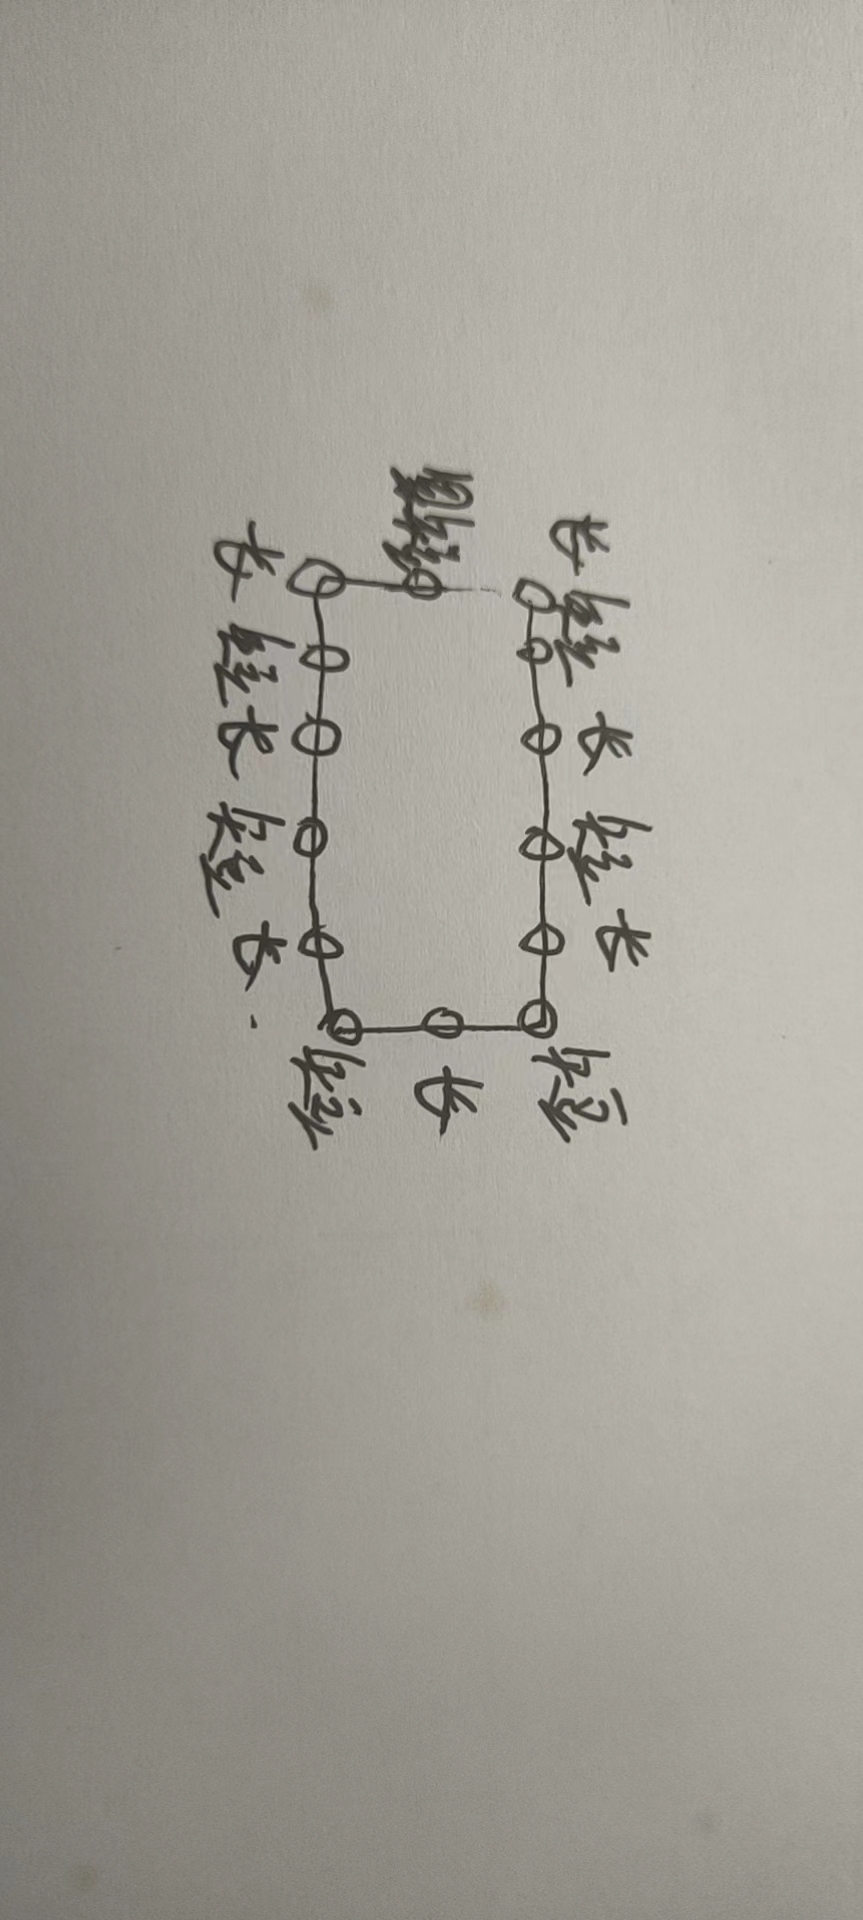 长 短 长 短 长 短
短 长
长 短 长 短 长 短